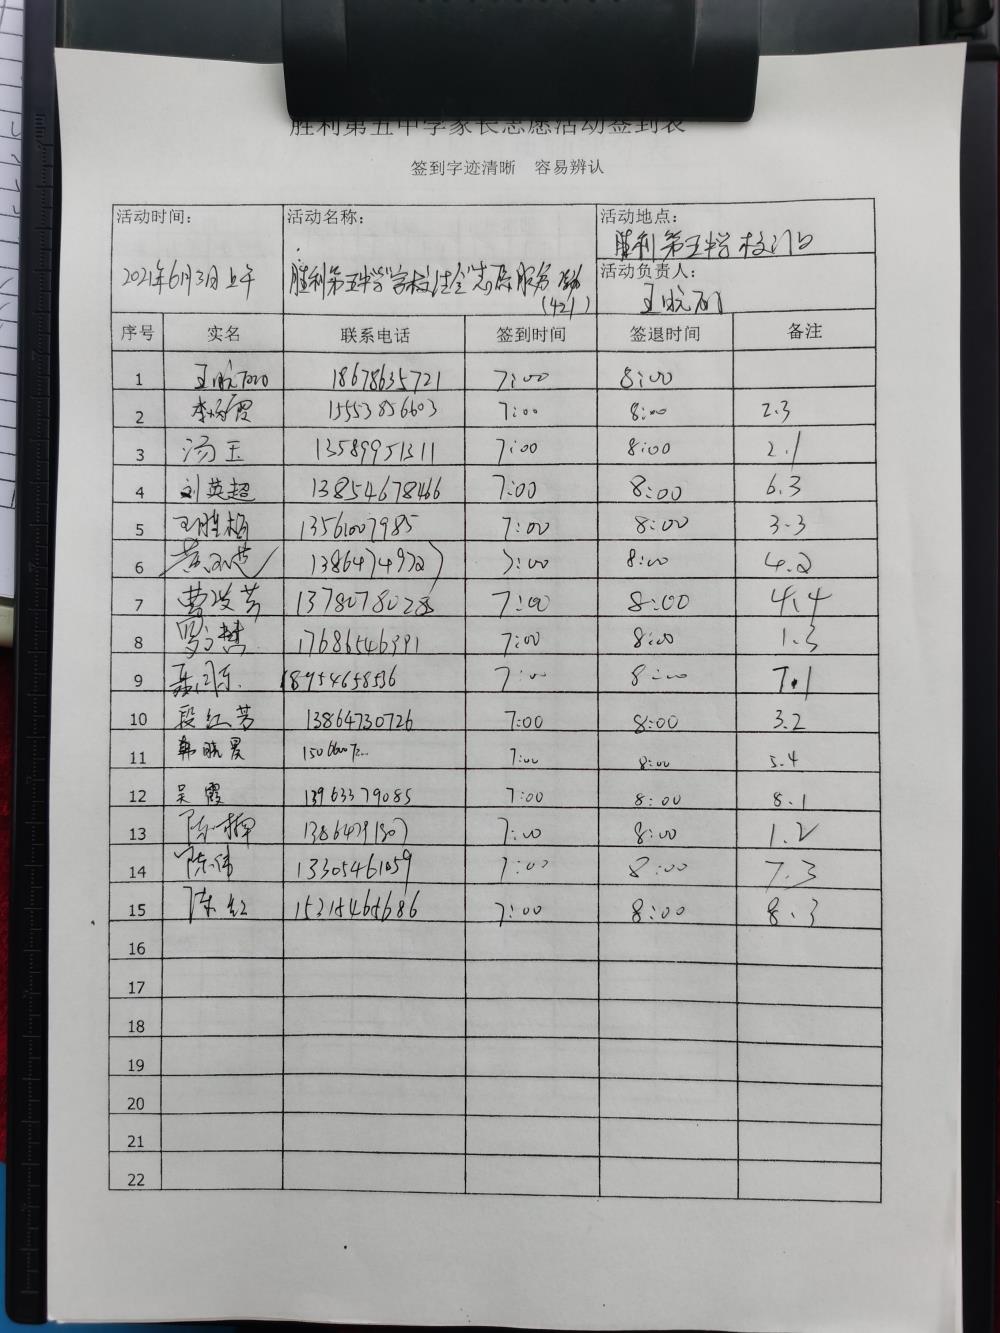 胜利第五中学家长志愿活动签到表
签到字迹清晰 容易辨认
活动时间: 活动名称: 活动地点:
胜利第五中学校门口
2021年6月3日上午 胜利第五中学学校 志愿服务 活动负责人:
(421)
序号 实名 联系电话 签到时间 签退时间 备注
1 18678635721 7:00 8:00
2 李炳霞 15553856603 7:00 8:00 2.3
3 汤玉 13589951311 7:00 8:00 2.1
4 刘英超 13854678466 7:00 8:00 6.3
5 王胜梅 13561007985 7:00 8:00 3.3
6 7:00 8:00 4.2
7 1378078028 7:00 8:00 4.4
8 17686546391 7:00 8:00 1.3
9 18954658536 7:00 8:00 7.1
10 段红芳 13864730726 7:00 8:00 3.2
11 韩晓霞 7:00 8:00 5.4
12 吴霞 13963379085 7:00 8:00 8.1
13 13864791507 7:00 8:00 1.2
14 陈伟 13305461059 7:00 8:00 7.3
15 陈红 15215465686 7:00 8:00 8.3
16
17
18
19
20
21
22